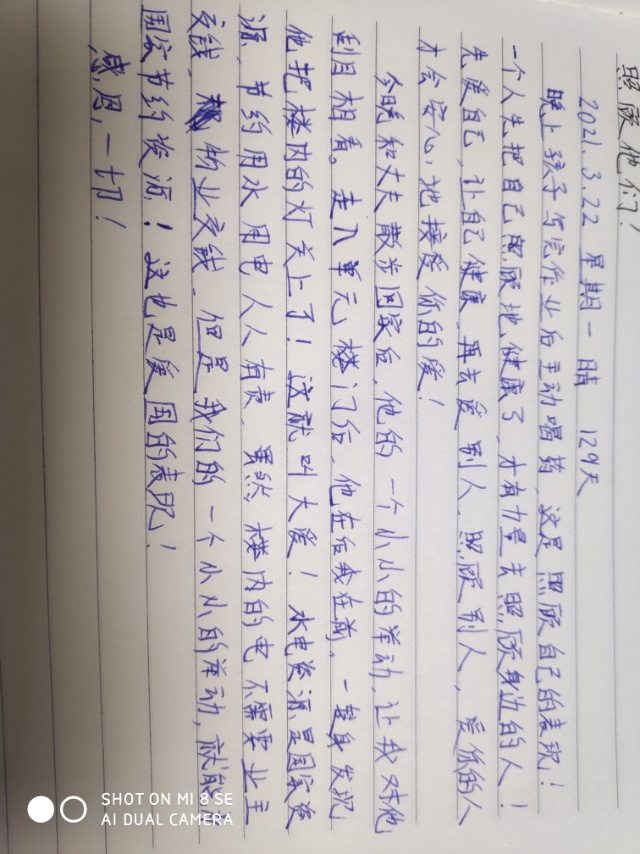 照顾他们!
2021.3.22 星期一 晴 129天
晚上孩子写完作业后主动喝药,这是照顾自己的表现!
一个人先把自己照顾地健康了,才有力量去照顾身边的人!
先爱自己,让自己健康,再去爱别人,照顾别人,爱你的人
才会安心地接受你的爱!
今晚和丈夫散步回家后,他的一个小小的举动,让我对他
刮目相看。走入单元楼门后,他在后我在前,一转身发现
他把楼内的灯关上了!这就叫大爱!水电资源是国家资
源,节约用水用电人人有责,虽然楼内的电不需要业主
交钱,物业交钱,但是我们的一个小小的举动,就能
国家节约资源!这也是爱国的表现!
感恩,一切!
SHOT ON MI 8 SE
AI DUAL CAMERA